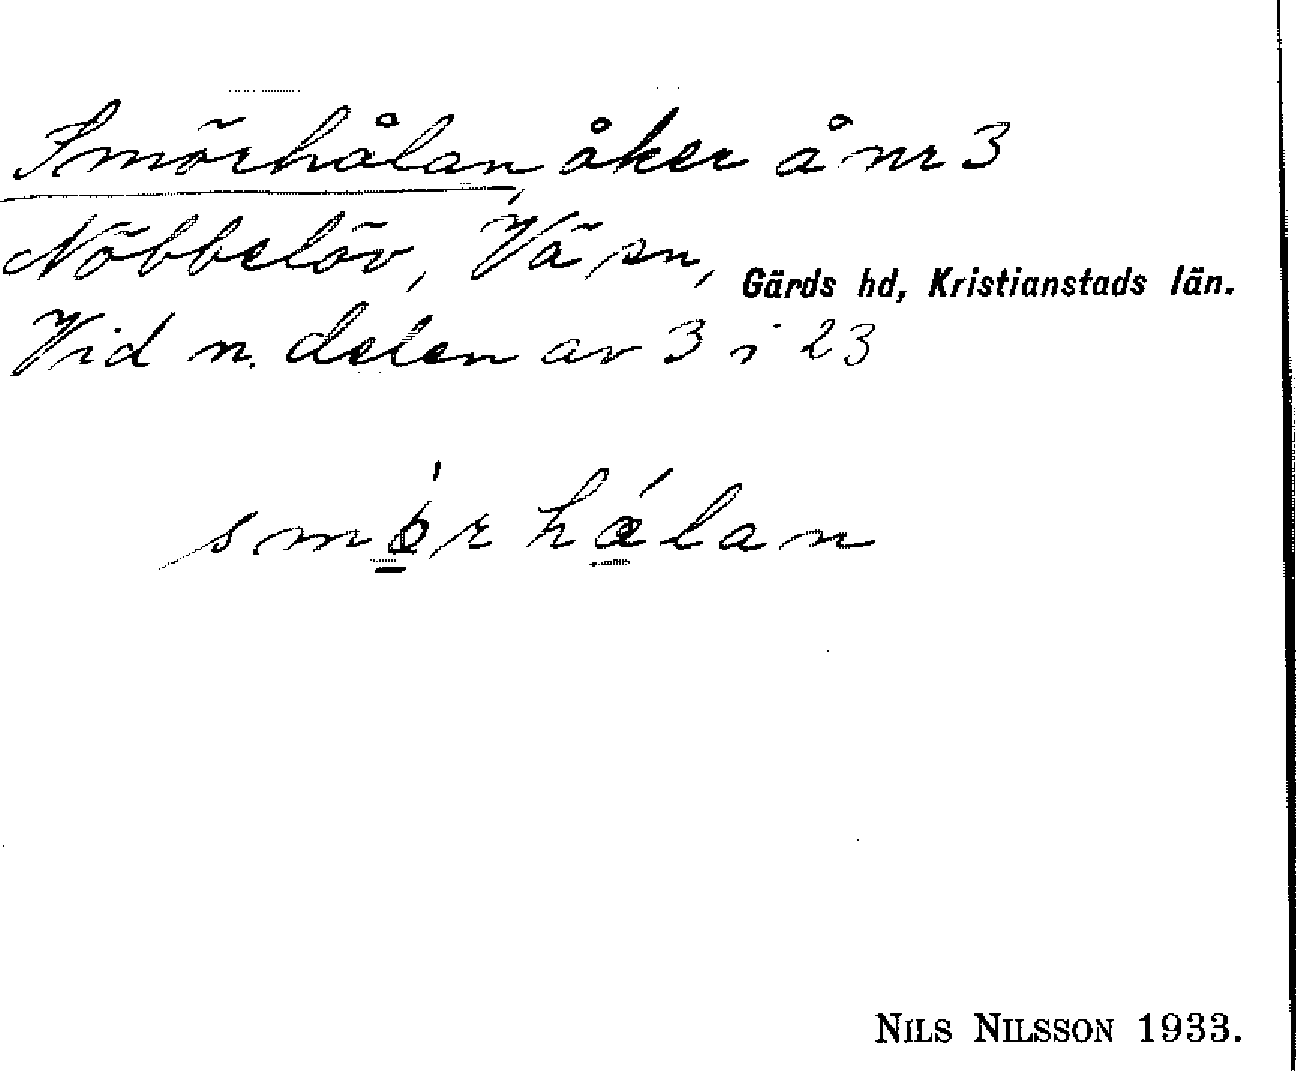 Smörhålan, åker å nr 3
Nöbbelöv, Vä sn, Gärds hd, Kristianstads län.
Vid n. delen av 3 i 23
NILS NILSSON 1933.